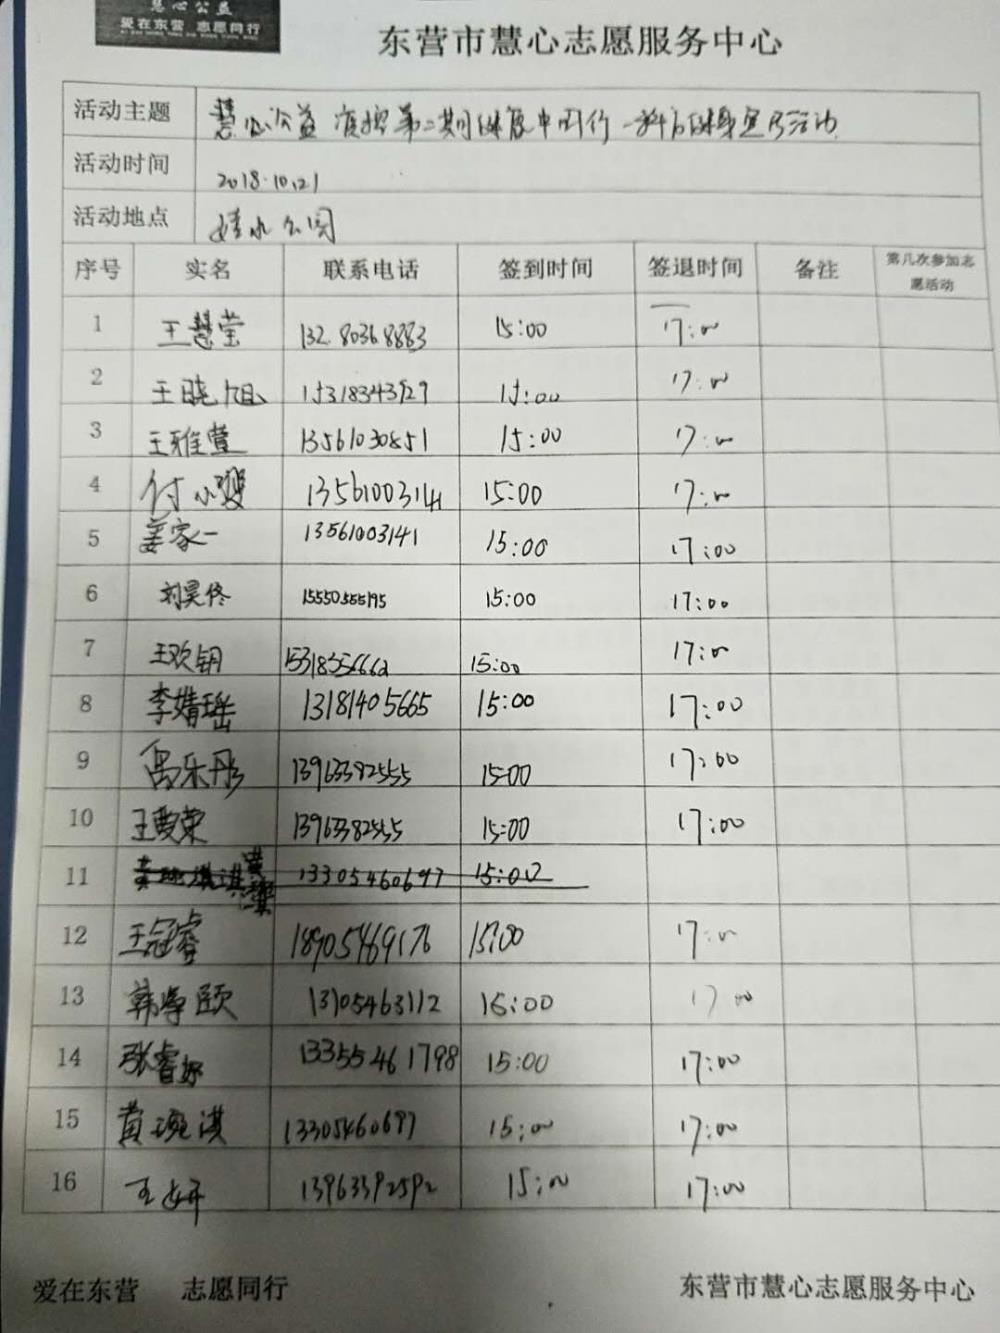 慧心公益
爱在东营 志愿同行
东营市慧心志愿服务中心
活动主题 慧心公益 第二期健康中国行
活动时间 2018.10.21
活动地点 清水公园
序号 实名 联系电话 签到时间 签退时间 备注 第几次参加志愿活动
1 王慧莹 13280368883 15:00 17:00
2 王晓旭 15318343929 15:00 17:00
3 王雅萱 13561030851 15:00 17:00
4 付小 13561003141 15:00 17:00
5 姜家一 13561003141 15:00 17:00
6 刘昊佟 15550355195 15:00 17:00
7 王欢钥 15318356662 15:00 17:00
8 李婧瑶 13181405665 15:00 17:00
9 乐彤 13963382555 15:00 17:00
10 王 荣 13963382555 15:00 17:00
11 13305460697 15:00
12 王冠睿 18905469176 15:00 17:00
13 韩 颐 13705463112 15:00 17:00
14 张睿妍 13355461798 15:00 17:00
15 黄琬淇 13305460697 15:00 17:00
16 王妍 13963392592 15:00 17:00
爱在东营 志愿同行 东营市慧心志愿服务中心